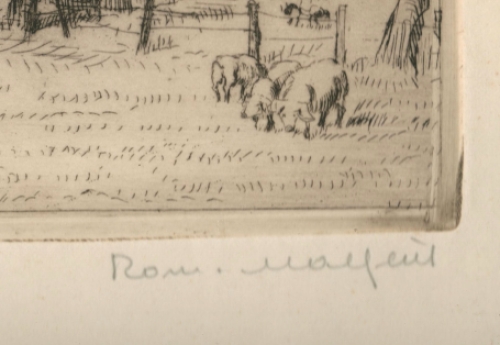 Rom. Malfeit